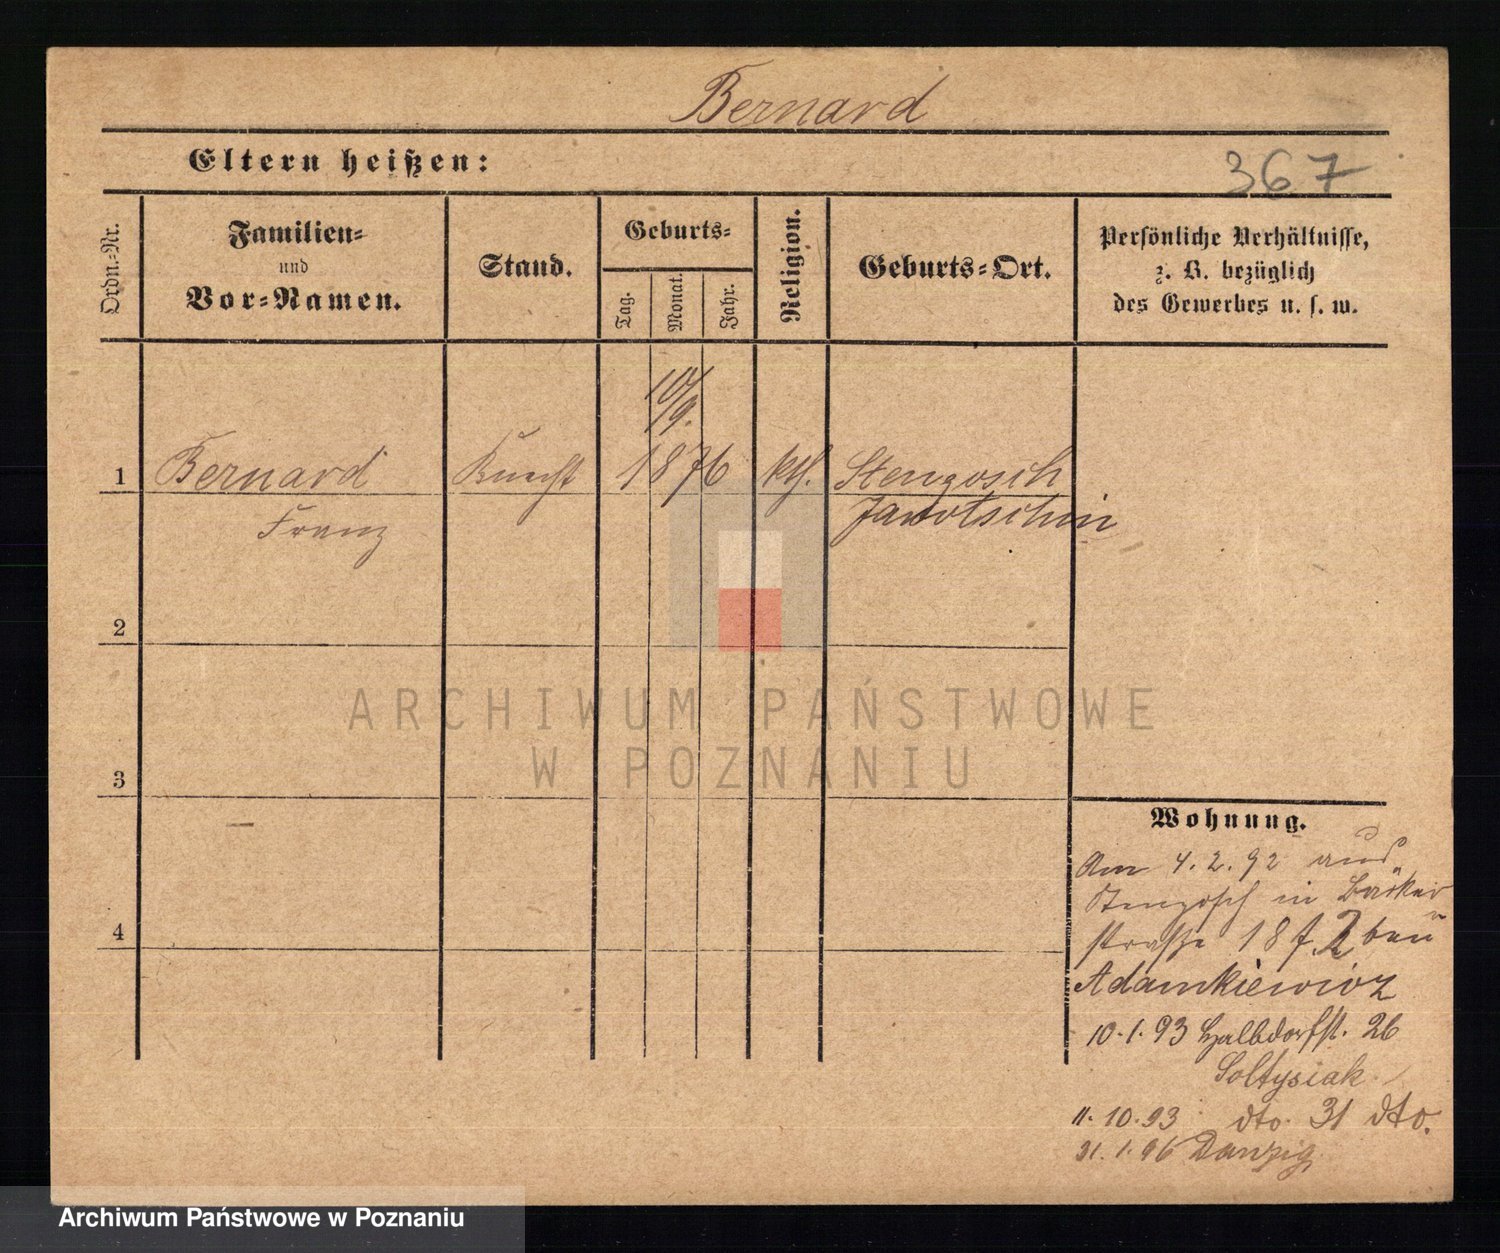 Bernard
Eltern heißen:
367
Ordn.-Nr.
Familien-
und
Vor-Namen.
Stand.
Geburts-
Tag.
Monat.
Jahr.
Religion.
Geburts-Ort.
Persönliche Verhältnisse,
z. B. bezüglich
des Gewerbes u. s. w.
10/9.
1 Bernard Knecht 1876 kth. Stengosch
Franz Jarotschin
2
3
4
Wohnung.
Am 4.2.92 aus
Stengosch in Bäcker
straße 18 bei
Adamkiewicz
10.1.93 Halbdorfst. 26
Soltysiak
11.10.93 dto. 31 dto.
31.1.96 Danzig
ARCHIWUM PAŃSTWOWE
W POZNANIU
Archiwum Państwowe w Poznaniu